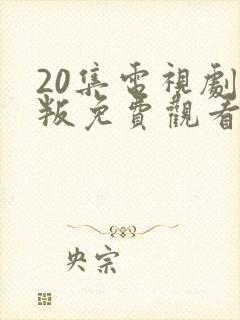 20集電視劇
叛免費觀看
央宗